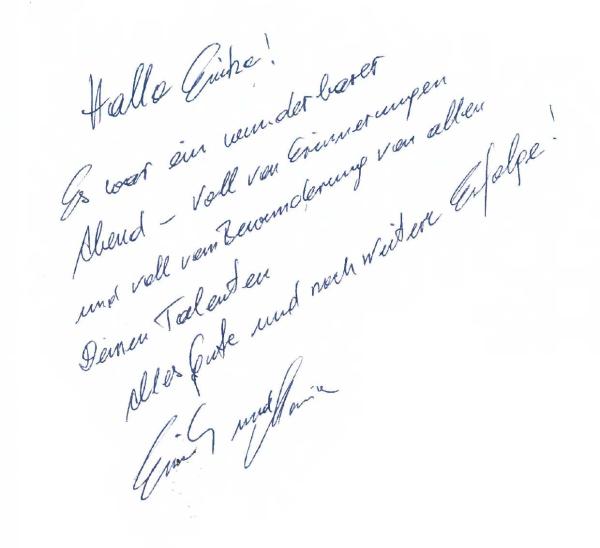 Hallo
Es war ein wunderbarer
Abend - voll von Erinnerungen
und voll von Bewunderung von allen
Deinen Talenten
Alles Gute und noch weitere Erfolge!
und